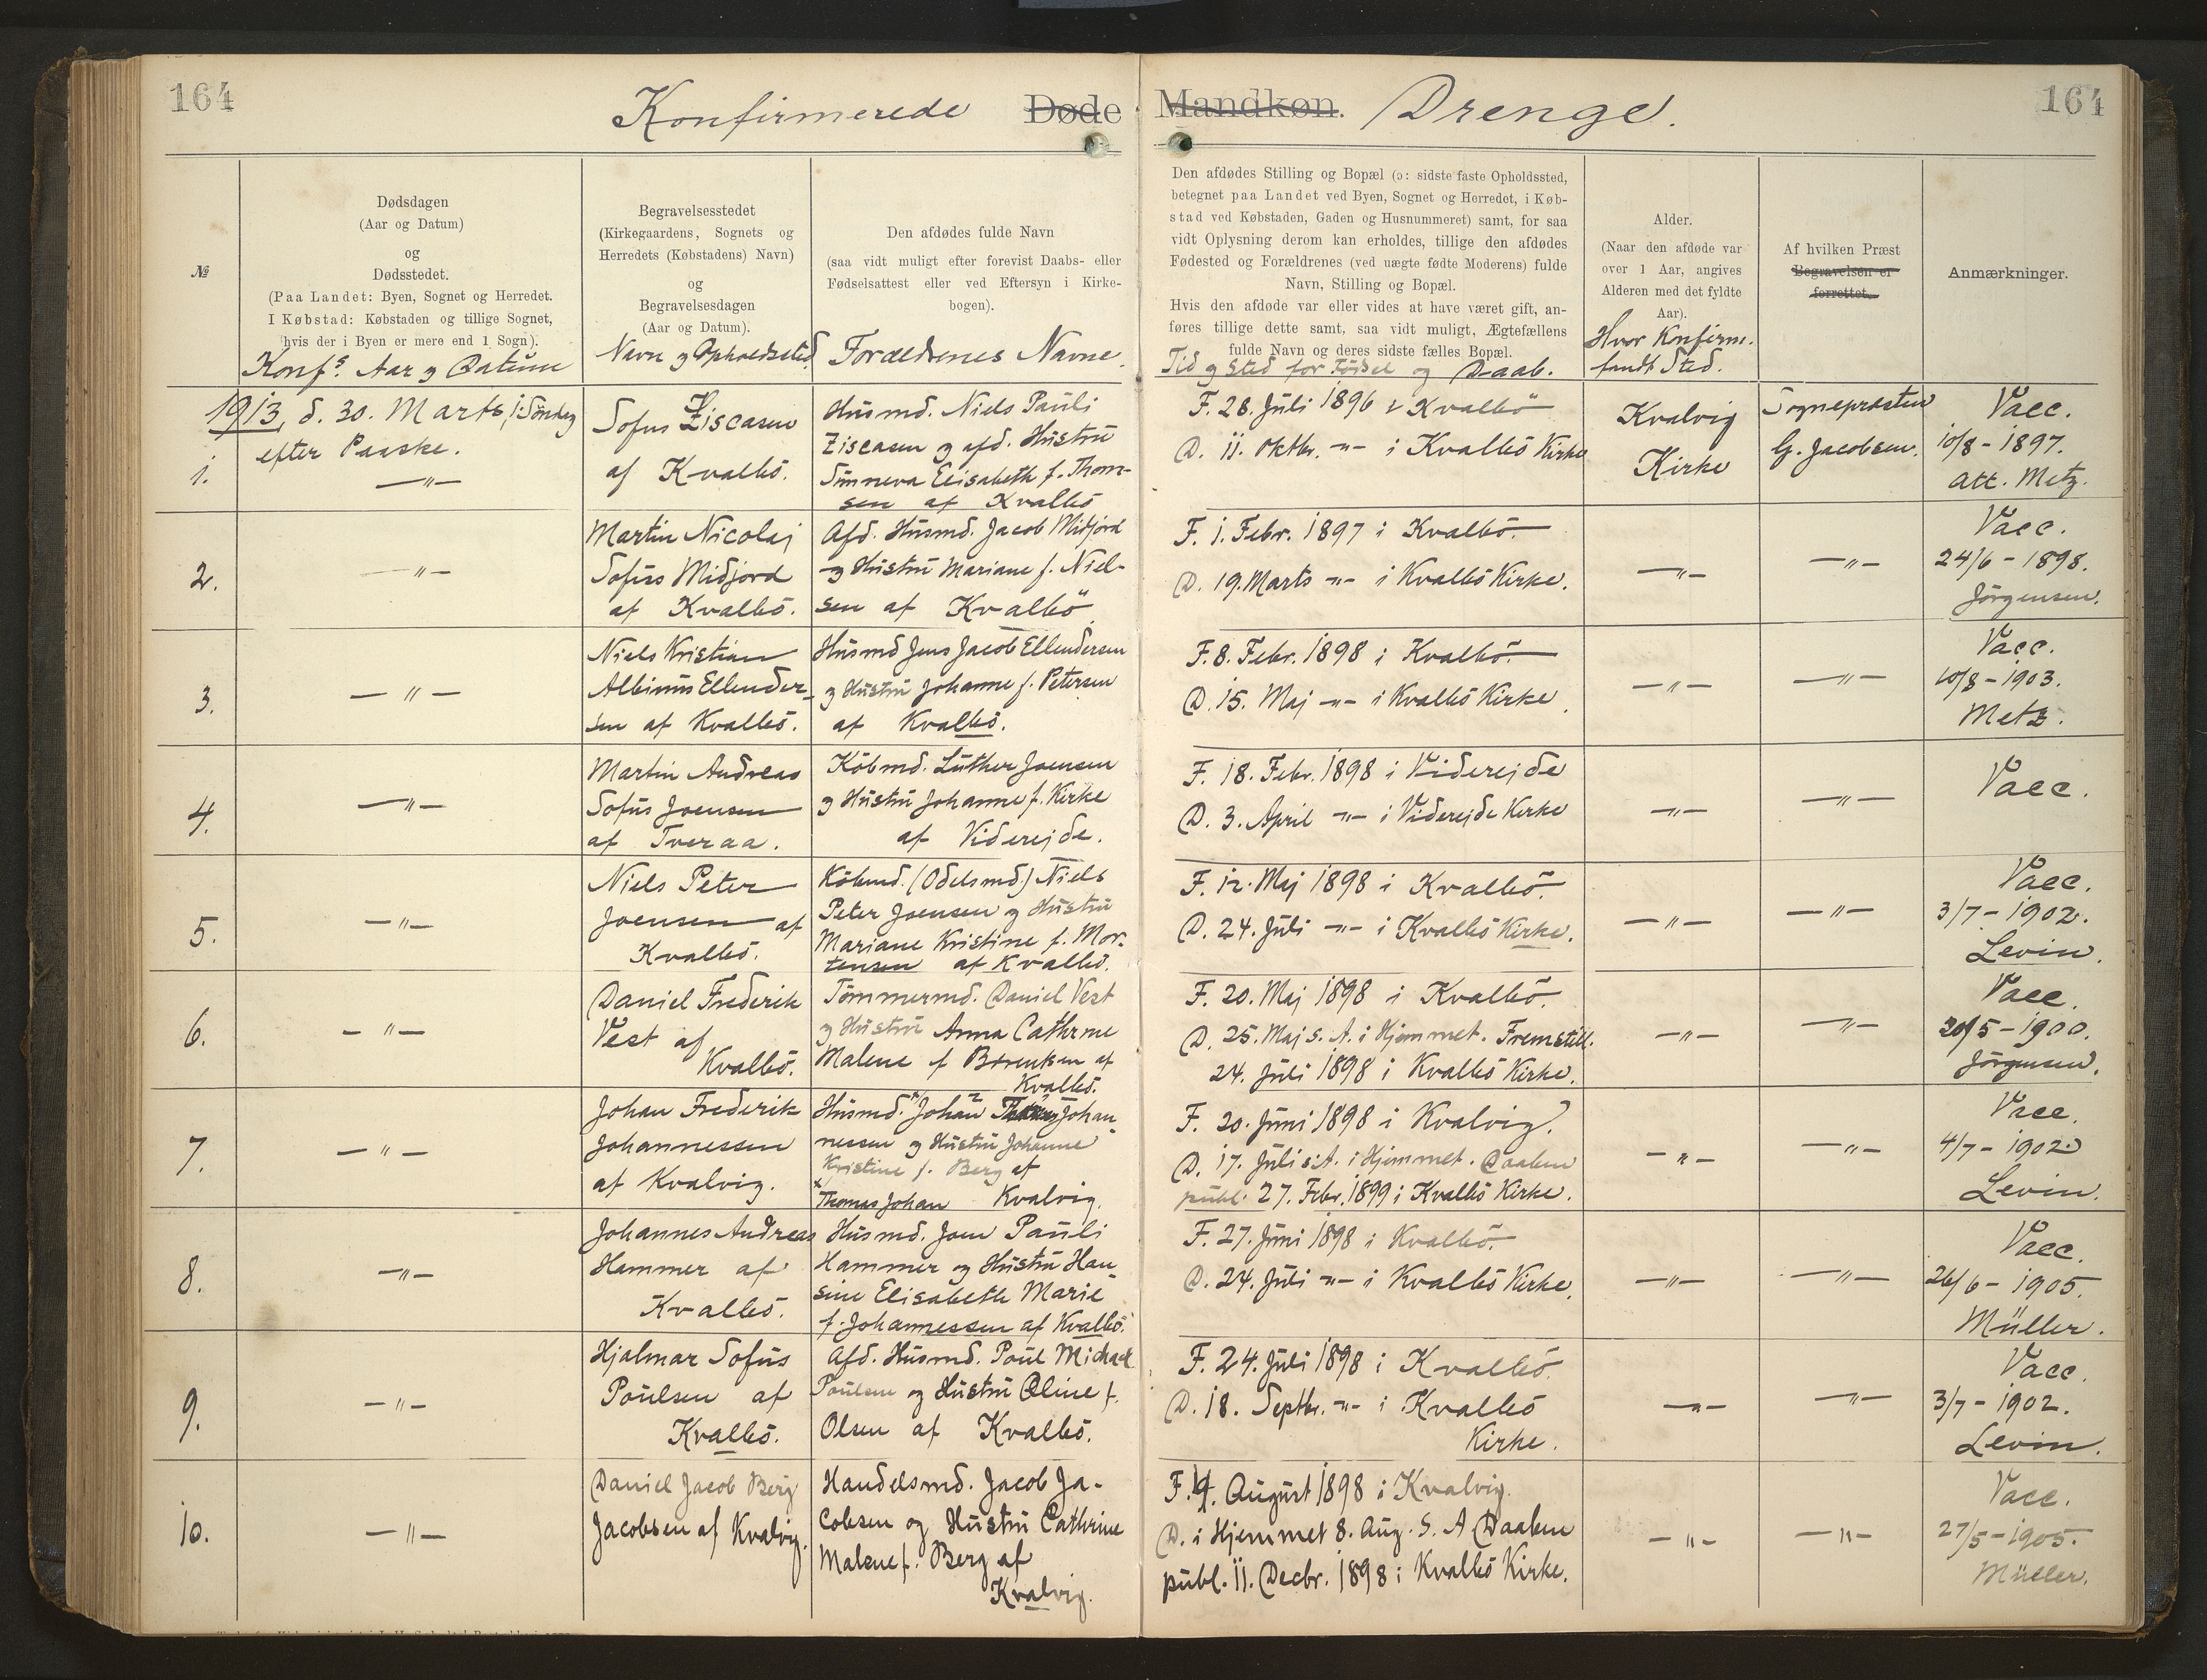 164
Konfirmerede Døde
Mandkøn. Drenge.
164
№
Dødsdagen
(Aar og Datum)
og
Dødsstedet.
(Paa Landet: Byen, Sognet og Herredet.
I Købstad: Købstaden og tillige Sognet,
hvis der i Byen er mere end 1 Sogn).
Konfs. Aar og Datum
Begravelsesstedet
(Kirkegaardens, Sognets og
Herredets (Købstadens) Navn)
og
Begravelsesdagen
(Aar og Datum).
Navn og Opholdssted.
Den afdødes fulde Navn
(saa vidt muligt efter forevist Daabs- eller
Fødselsattest eller ved Eftersyn i Kirke-
bogen).
Forældrenes Navne.
Den afdødes Stilling og Bopæl (ɔ: sidste faste Opholdssted,
betegnet paa Landet ved Byen, Sognet og Herredet, i Køb-
stad ved Købstaden, Gaden og Husnummeret) samt, for saa
vidt Oplysning derom kan erholdes, tillige den afdødes
Fødested og Forældrenes (ved uægte fødte Moderens) fulde
Navn, Stilling og Bopæl.
Hvis den afdøde var eller vides at have været gift, an-
føres tillige dette samt, saa vidt muligt, Ægtefællens
fulde Navn og deres sidste fælles Bopæl.
Tid og Sted for Fødsel og Daab.
Alder.
(Naar den afdøde var
over 1 Aar, angives
Alderen med det fyldte
Aar).
Hvor Konfirm.
fandt Sted.
Af hvilken Præst
Begravelsen er
forrettet.
Anmærkninger.
1.
1913, d. 30. Marts, 1. Søndag
efter Paaske.
—"—
Sofus Ziscasen
af Kvalbö.
Husmd. Niels Pauli
Ziscasen og afd. Hustru
Sunneva Elisabeth f. Thom-
sen af Kvalbö
F. 28. Juli 1896 i Kvalbö
D. 11. Oktbr. -"- i Kvalbö Kirke
Kvalvig
Kirke
Sognepræsten
G. Jacobsen.
Vacc.
10/8 - 1897.
att. Metz.
2.
—"—
Martin Nicolaj
Sofus Midjord
af Kvalbö.
Afd. Husmd. Jacob Midjord
og Hustru Mariane f. Niel-
sen af Kvalbö
F. 1. Febr. 1897 i Kvalbö.
D. 19. Marts -"- i Kvalbö Kirke.
—"—
—"—
Vacc.
24/6 - 1898.
Jörgensen.
3.
—"—
Niels Kristian
Albinus Ellender-
sen af Kvalbö.
Husmd Jens Jacob Ellendersen
og Hustru Johanne f. Petersen
af Kvalbö.
F. 8. Febr. 1898 i Kvalbö.
D. 15. Maj -"- i Kvalbö Kirke.
—"—
—"—
Vacc.
10/8 - 1903.
Metz.
4.
—"—
Martin Andreas
Sofus Joensen
af Tveraa.
Köbmd. Luther Joensen
og Hustru Johanne f. Kirke
af Viderejde.
F. 18. Febr. 1898 i Viderejde
D. 3. April -"- i Viderejde Kirke
—"—
—"—
Vacc.
5.
—"—
Niels Peter
Joensen af
Kvalbö.
Köbmd. (Odelsmd.) Niels
Peter Joensen og Hustru
Mariane Kristine f. Mor-
tensen af Kvalbö.
F. 12. Maj 1898 i Kvalbö.
D. 24. Juli -"- i Kvalbö Kirke.
—"—
—"—
Vacc.
3/7 - 1902.
Levin.
6.
—"—
Daniel Frederik
Vest af
Kvalbö.
Tömmermd. Daniel Vest
og Hustru Anna Cathrine
Malene f. Berentsen af
Kvalbö.
F. 20. Maj 1898 i Kvalbö.
D. 25. Maj s. A. i Hjemmet. Fremstill.
24. Juli 1898 i Kvalbö Kirke.
—"—
—"—
Vacc.
20/5 - 1900.
Jörgensen.
7.
—"—
Johan Frederik
Johannessen
af Kvalvig.
Husmd. Johan Thomas Johan-
nessen og Hustru Johanne
Kristine f. Berg af
Thomas Johan Kvalvig.
F. 20. Juni 1898 i Kvalvig.
D. 17. Juli s. A. i Hjemmet. Daaben
publ. 27. Febr. 1899 i Kvalbö Kirke.
—"—
—"—
Vacc.
4/7 - 1902
Levin.
8.
—"—
Johannes Andreas
Hammer af
Kvalbö.
Husmd. Joen Pauli
Hammer og Hustru Han-
sine Elisabeth Marie
f. Johannessen af Kvalbö.
F. 27. Juni 1898 i Kvalbö.
D. 24. Juli -"- i Kvalbö Kirke.
—"—
—"—
Vacc.
26/6 - 1905.
Müller.
9.
—"—
Hjalmar Sofus
Poulsen af
Kvalbö.
Afd. Husmd. Poul Michael
Poulsen og Hustru Oline f.
Olsen af Kvalbö.
F. 24. Juli 1898 i Kvalbö.
D. 18. Septbr. -"- i Kvalbö
Kirke.
—"—
—"—
Vacc.
3/7 - 1902.
Levin.
10.
—"—
Daniel Jacob Berg
Jacobsen af Kvalvig.
Handelsmd. Jacob Ja-
cobsen og Hustru Cathrine
Malene f. Berg af
Kvalvig.
F. 4. August 1898 i Kvalvig.
D. i Hjemmet 8. Aug. S. A Daaben
publ. 11. Decbr. 1898 i Kvalbö Kirke.
—"—
—"—
Vacc.
27/5 - 1905.
Müller.